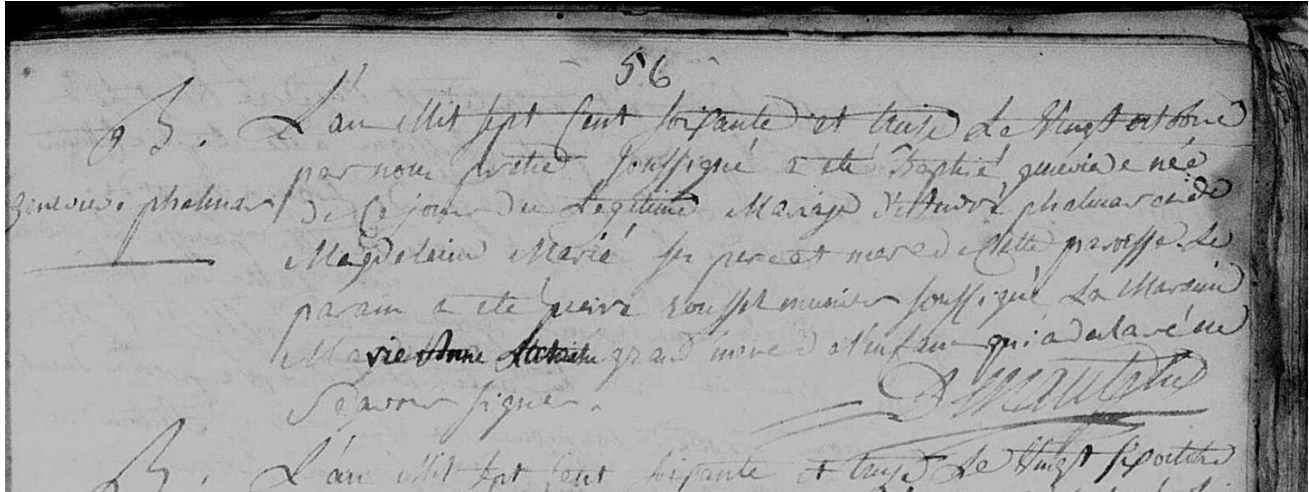 56
B.
genevieve phelmar
L'an Mil Sept Cent Soixante et treize Le Vingt octobre
par nous prêtre Soussigné a été Baptisé genevieve née
de Ce jour du Legitime Mariage d'André phelmar et de
Magdeleine Marié Ses pere et mere de Cette paroisse Le
parain a été pierre rousset munier Soussigné La Mareine
Marie Anne grand mere de l'enfant qui a declaré ne
Sçavoir signer.
B. L'an Mil Sept Cent Soixante et treize Le Vingt Six octobre